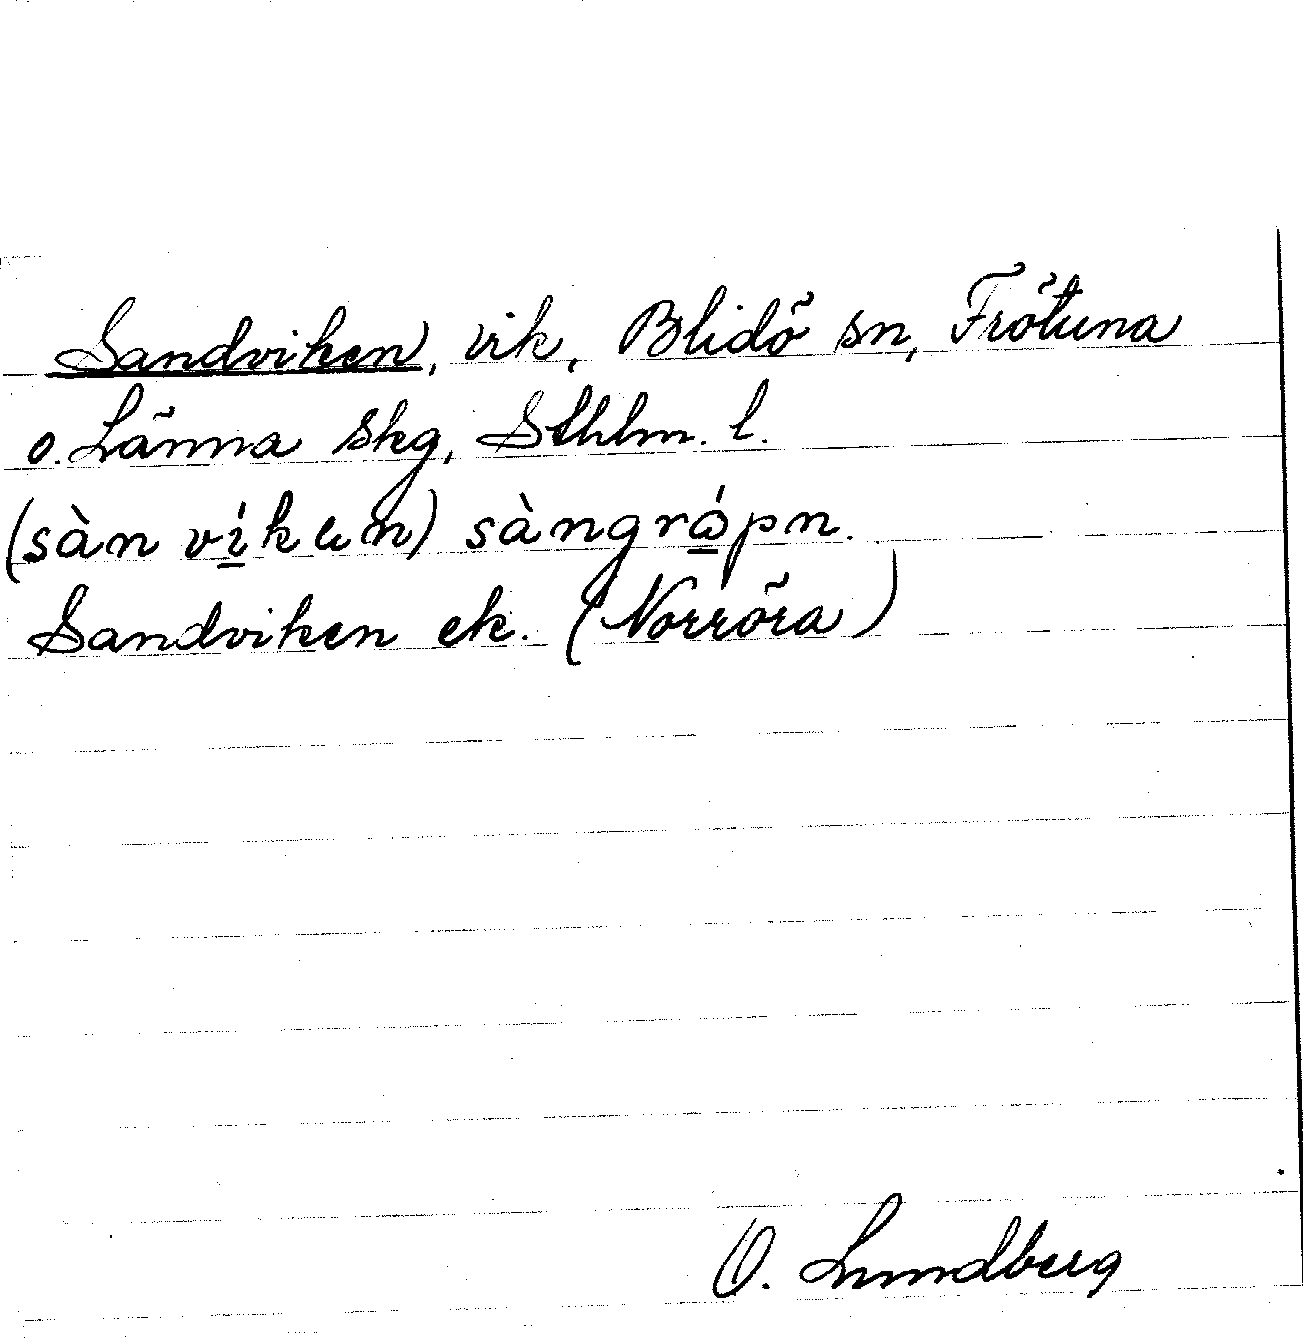 Sandviken, vik, Blidö sn, Frötuna
o. Länna skg, Sthlm. l.
(sàn víkɐn) sàngrǫ́pn.
Sandviken ek. (Norröra)
O. Lundberg